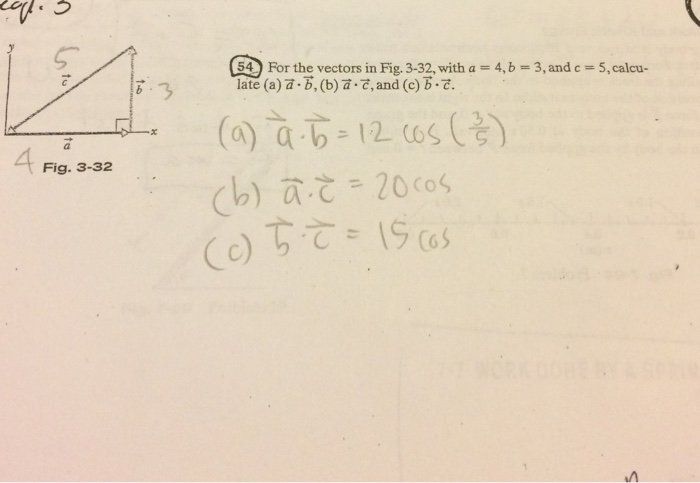 5
y
c
b
3
x
a
4
Fig. 3-32
54 For the vectors in Fig. 3-32, with a = 4, b = 3, and c = 5, calcu-
late (a) a⃗ · b⃗, (b) a⃗ · c⃗, and (c) b⃗ · c⃗.
(a) a⃗ · b⃗ = 12 cos (3/5)
(b) a⃗ · c⃗ = 20 cos
(c) b⃗ · c⃗ = 15 cos